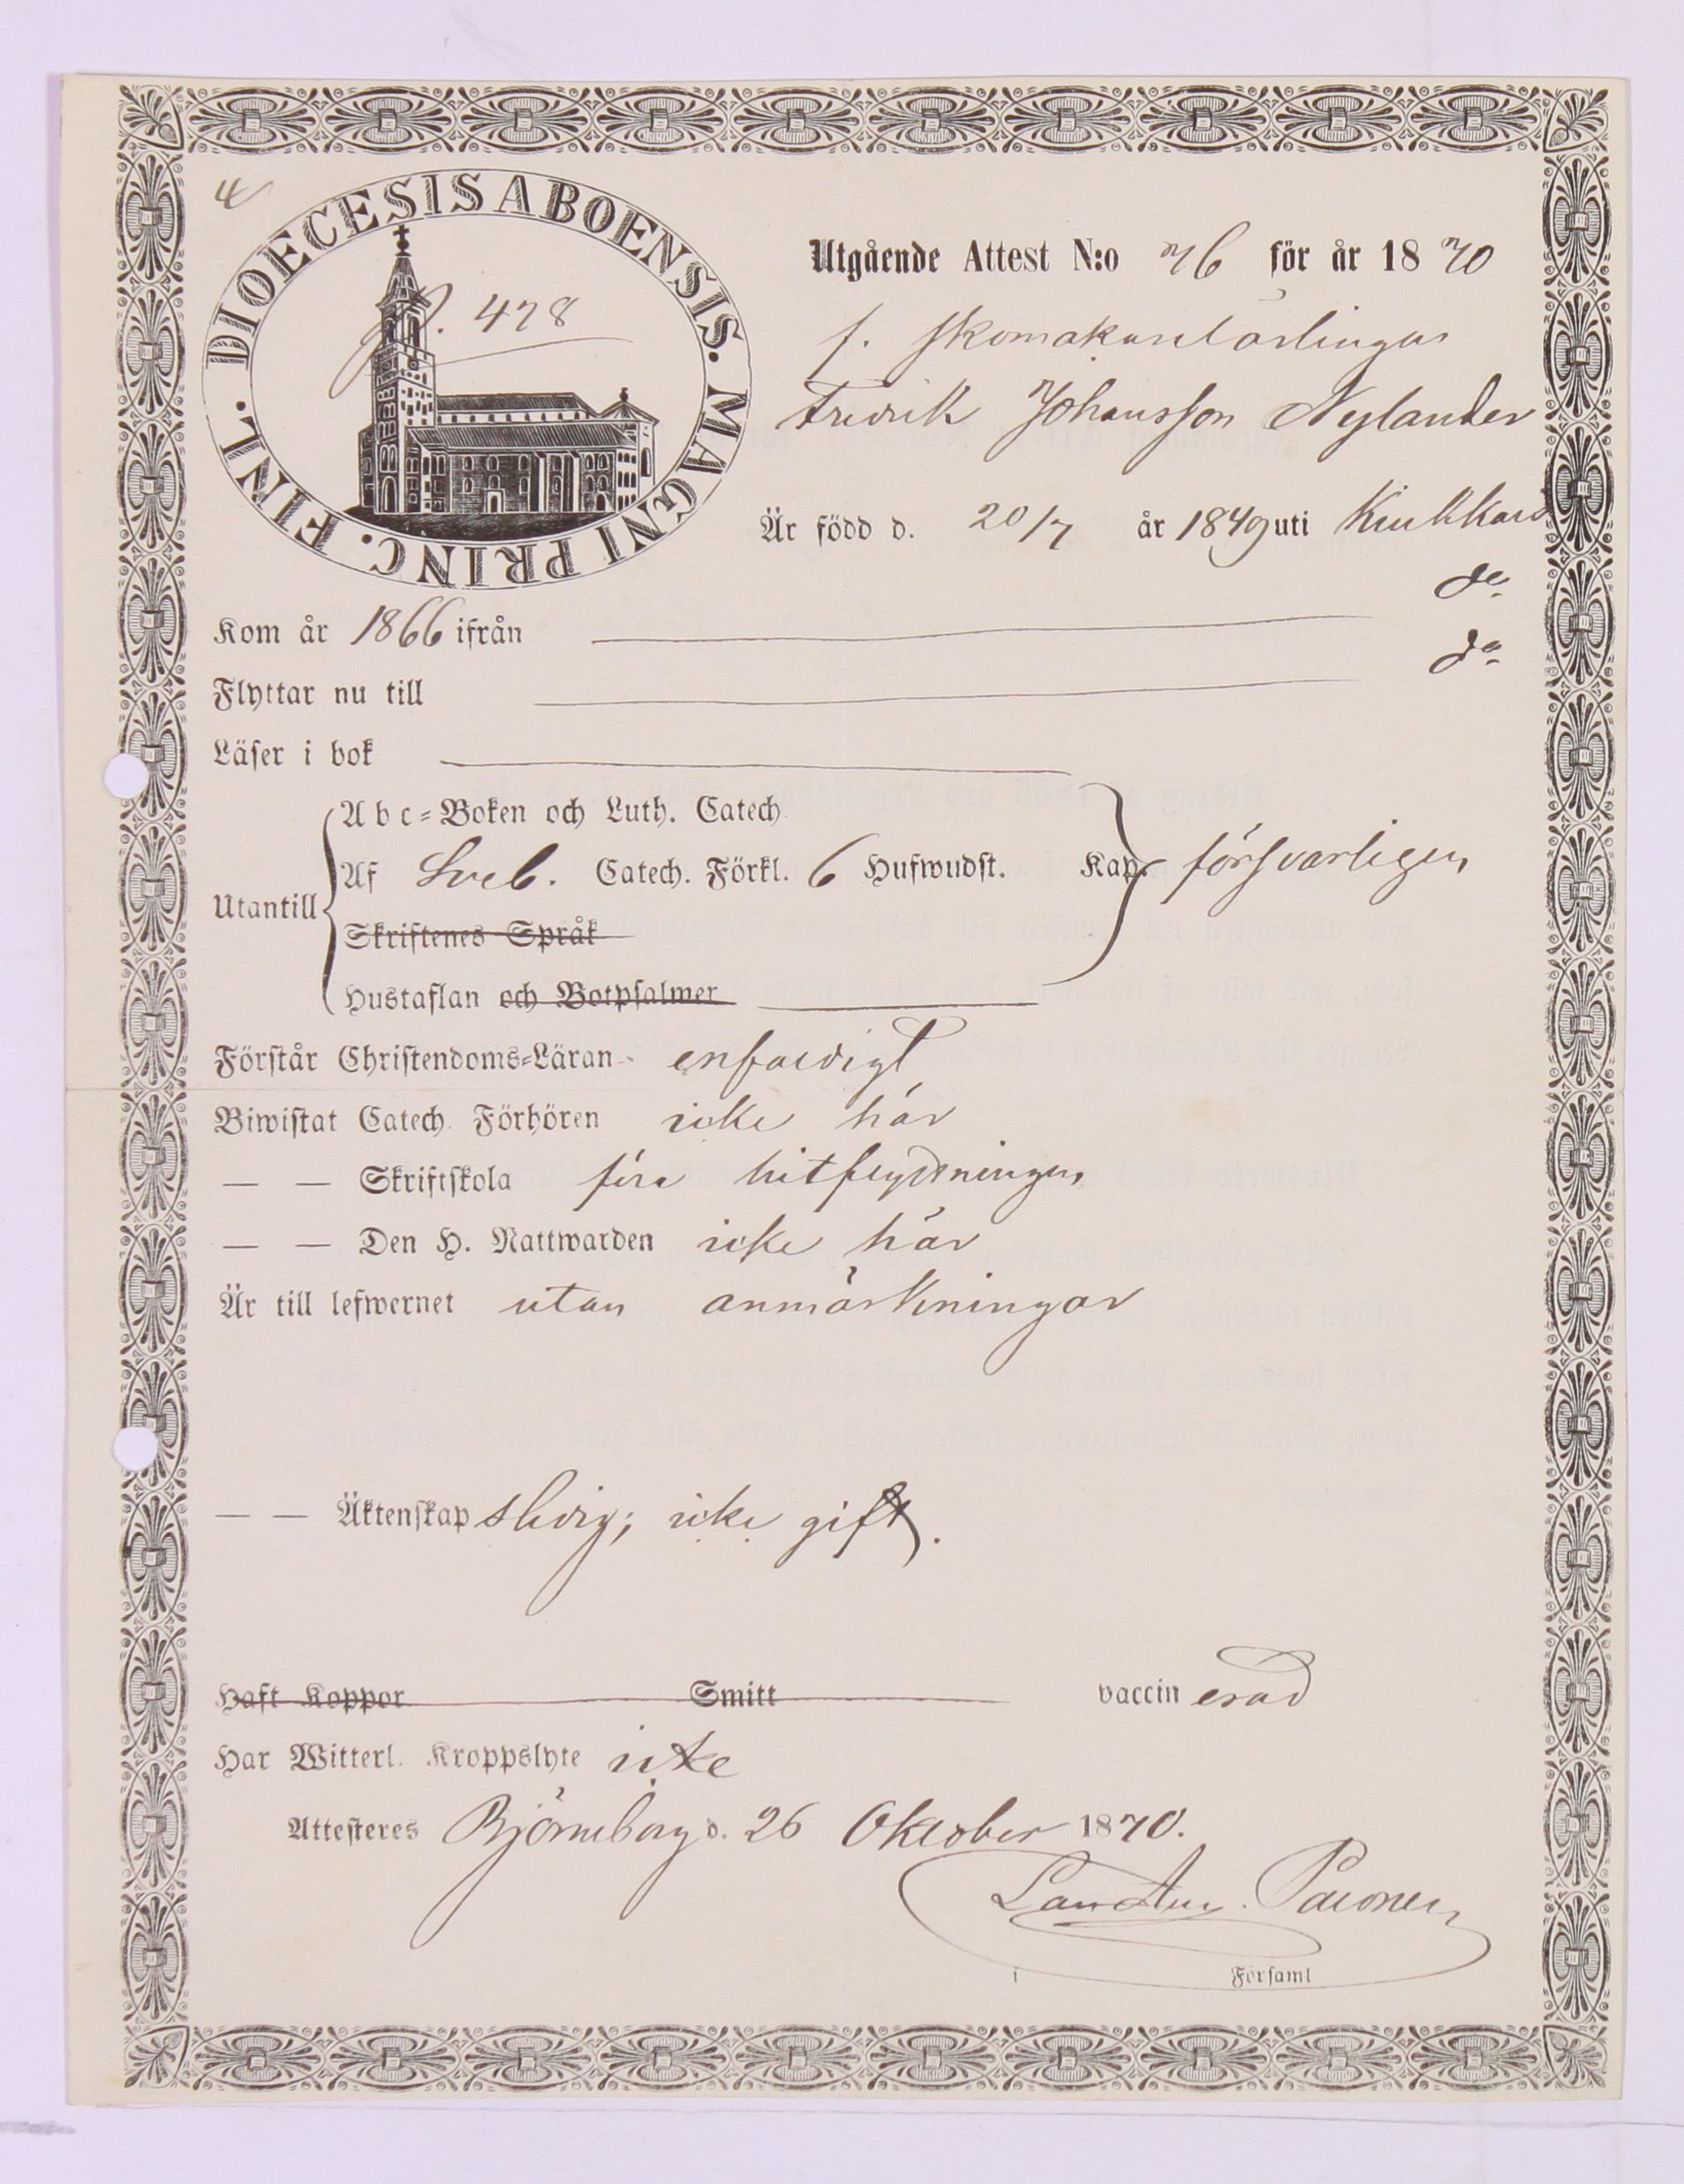 4
DIOECESIS ABOENSIS. MAGNI PRINC. FINL.
p. 478
Utgående Attest N:o 76 för år 1870
f. Skomakarelärlingen
Fredrik Johansson Nylander
Är född d. 20/7 år 1849 uti Kiukkais
Kom år 1866 ifrån do.
Flyttar nu till do.
Läser i bok
Abc-Boken och Luth. Catech.
Utantill Af Sveb. Catech. Förkl. 6 Hufwudst. Kap. försvarligen
Skriftenes Språk
Hustaflan och Botpsalmer
Förstår Christendoms-Läran enfaldigt
Biwistat Catech. Förhören icke här
— — Skriftskola före hitflyttningen
— — Den H. Nattwarden icke här
Är till lefwernet utan anmärkningar
— — Äktenskap ledig; icke gift.
Haft Koppor Smitt vaccinerad
Har Witterl. Kroppslyte icke
Attesteres Björneborg d. 26 Oktober 1870.
i Församl